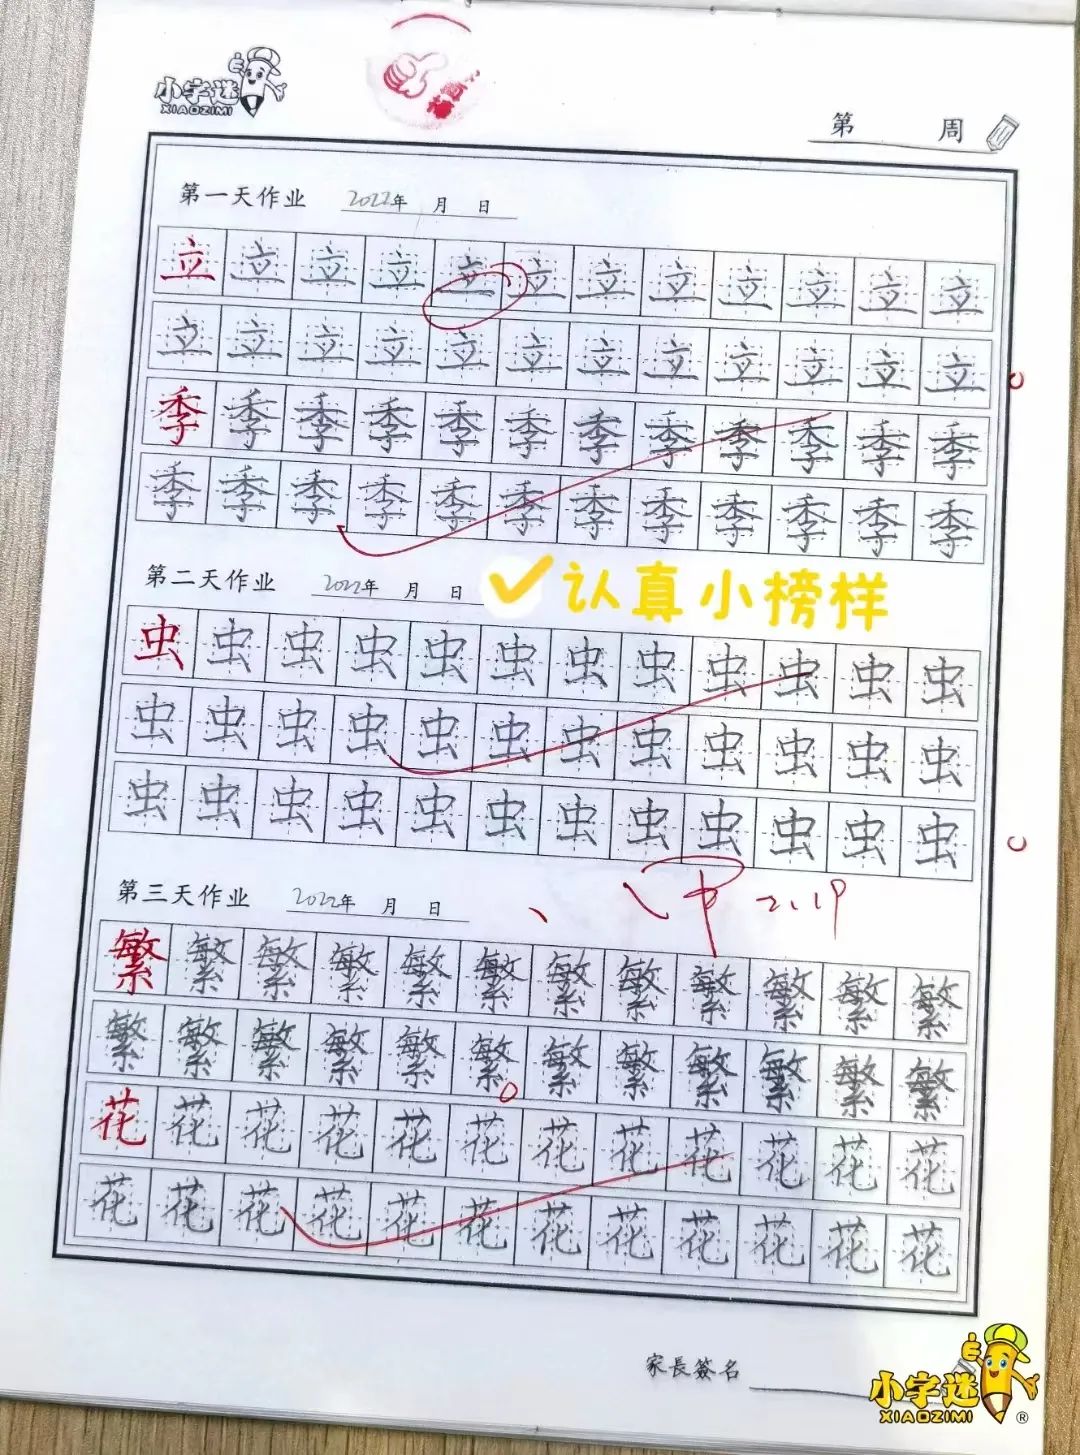 小字迷
XIAOZIMI
第 周
第一天作业 2022年 月 日
立立立立立立立立立立立立
立立立立立立立立立立立立
季季季季季季季季季季季季
季季季季季季季季季季季季
第二天作业 2022年 月 日
认真小榜样
虫虫虫虫虫虫虫虫虫虫虫虫
虫虫虫虫虫虫虫虫虫虫虫虫
虫虫虫虫虫虫虫虫虫虫虫虫
2.19
第三天作业 2022年 月 日
繁繁繁繁繁繁繁繁繁繁繁繁
繁繁繁繁繁繁繁繁繁繁繁繁
花花花花花花花花花花花花
花花花花花花花花花花花花
家長簽名
小字迷
XIAOZIMI®